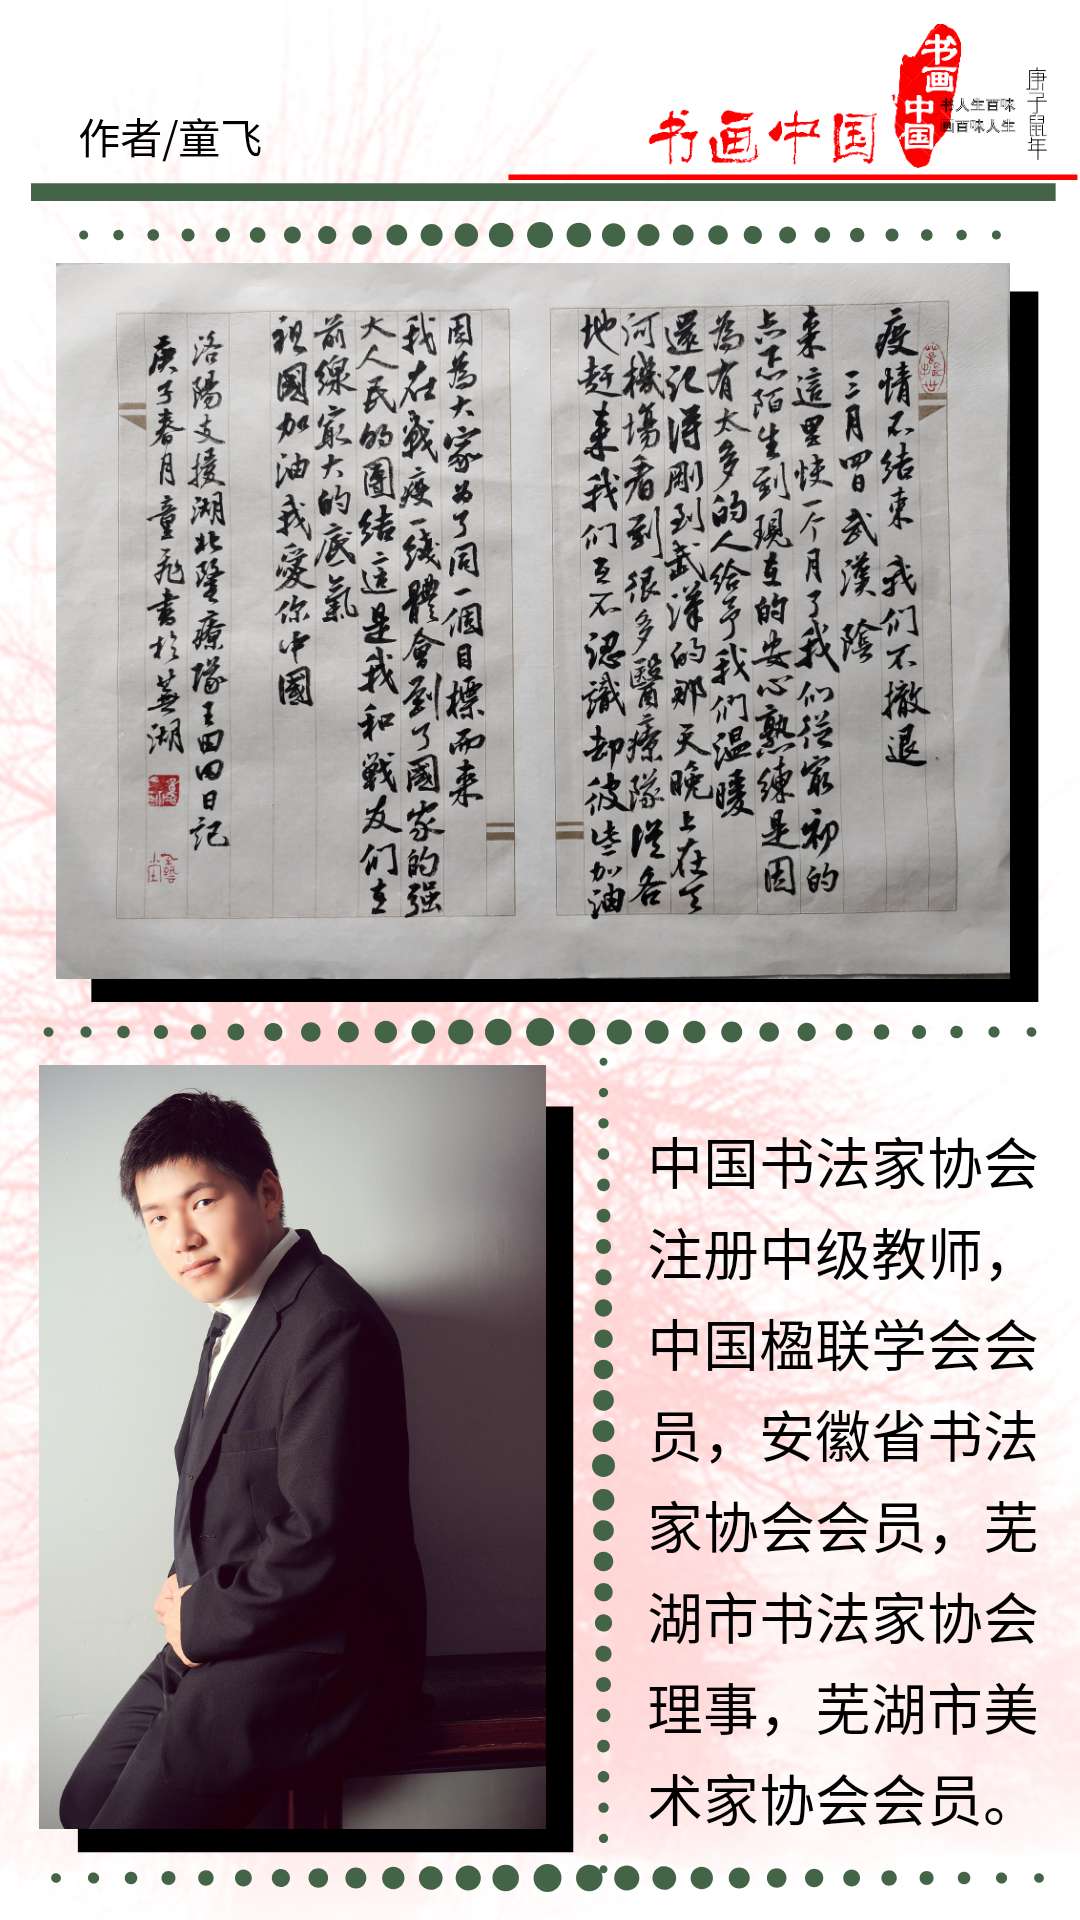 作者/童飞
书画中国
书画
中国
书人生百味
画百味人生
庚子鼠年
疫情不结束 我们不撤退
三月四日 武漢 陰
来這里快一个月了我们從最初的
忐忑陌生到現在的安心熟練是因
為有太多的人给予我们温暖
還记得剛到武漢的那天晚上在天
河機場看到很多醫療隊從各
地赶来我们互不認識却彼此加油
因為大家为了同一個目標而来
我在戰疫一线體會到了國家的强
大人民的團结这是我和戰友们在
前線最大的底氣
祖國加油我愛你中國
洛陽支援湖北醫療隊王田田日記
庚子春月童飛書於蕪湖
中国书法家协会
注册中级教师，
中国楹联学会会
员，安徽省书法
家协会会员，芜
湖市书法家协会
理事，芜湖市美
术家协会会员。